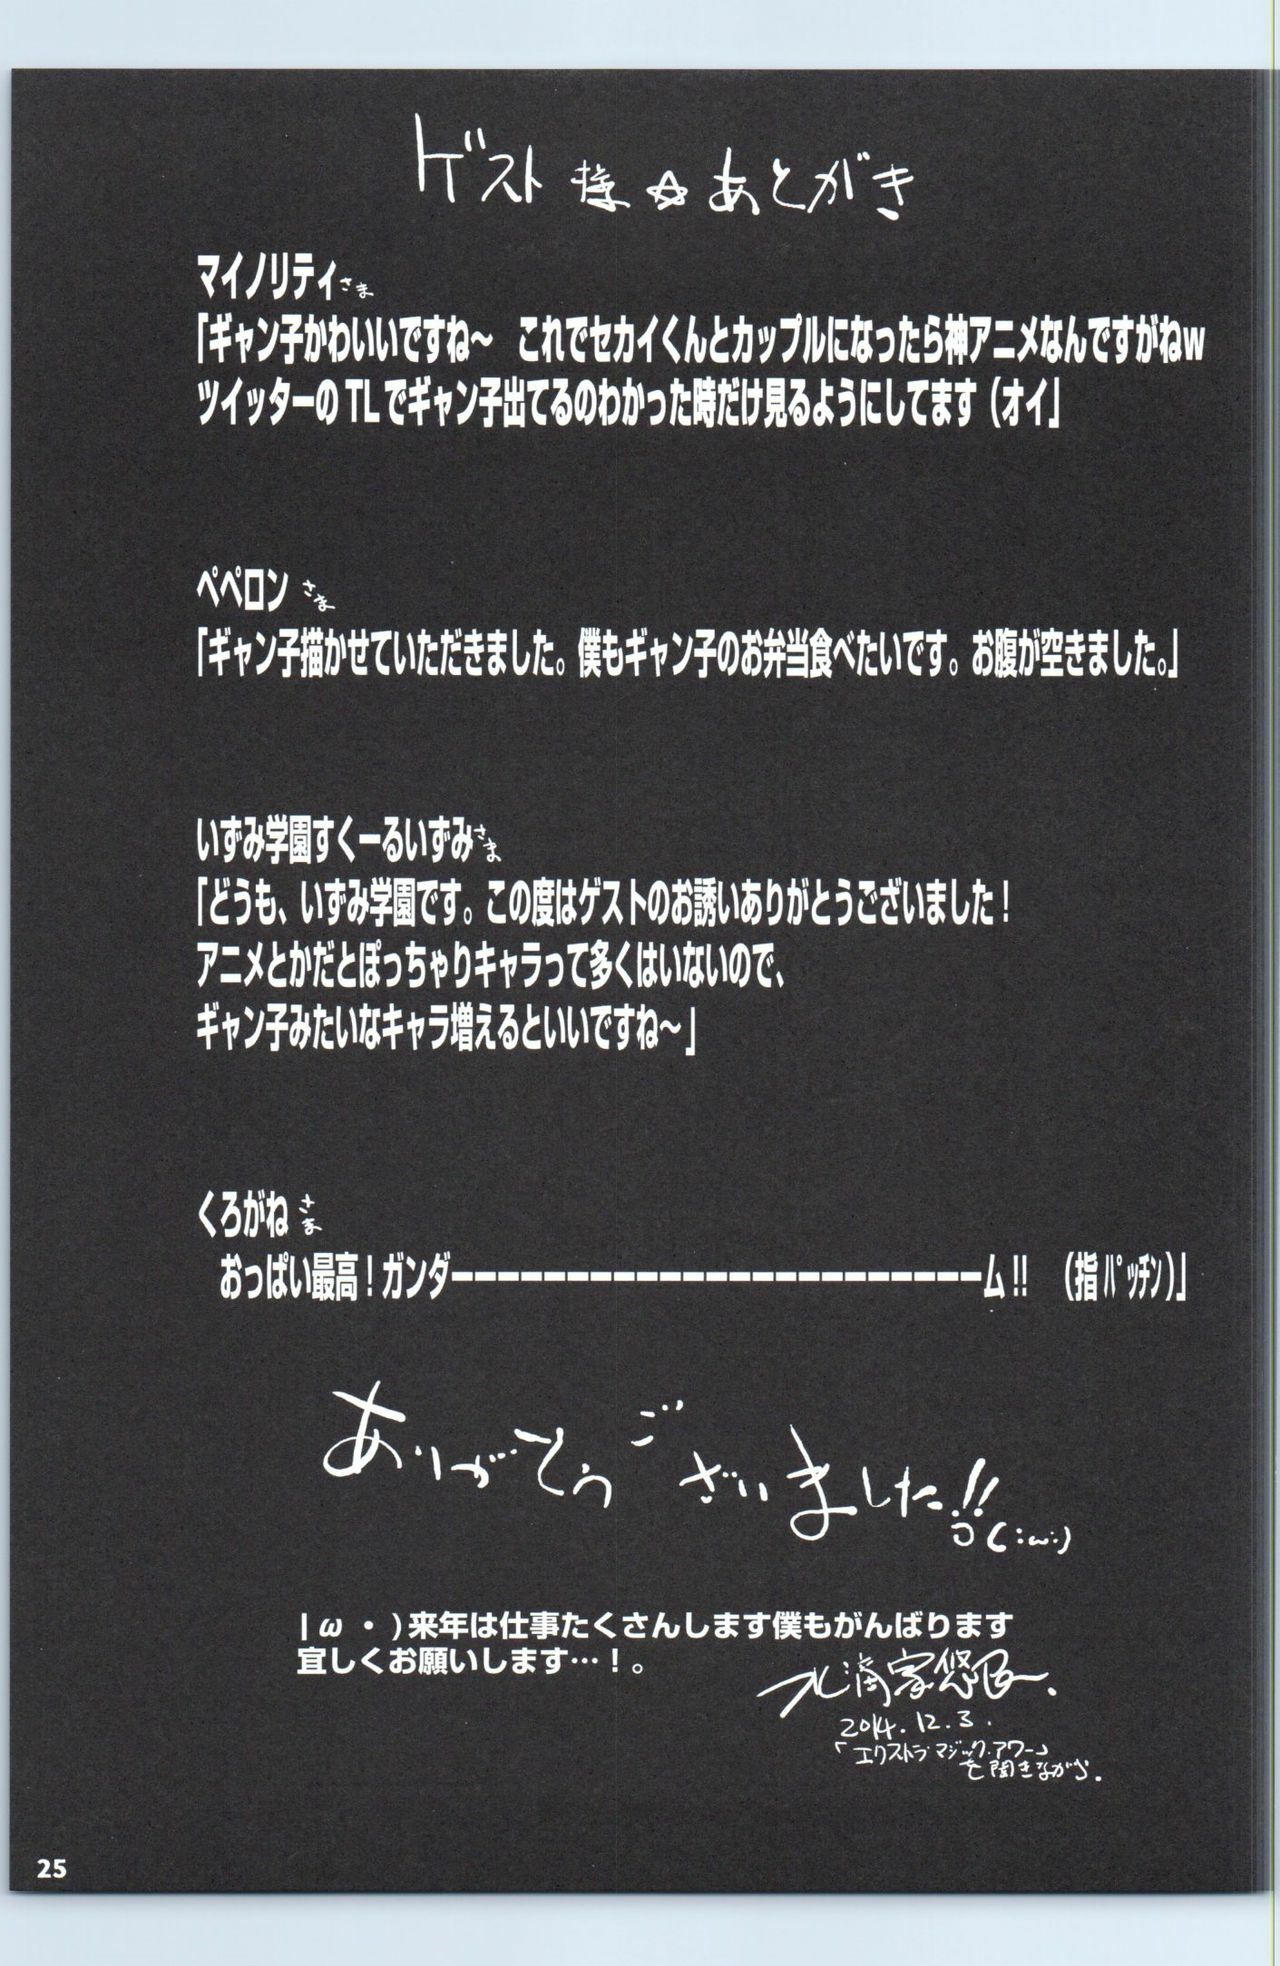 ゲスト様☆あとがき
マイノリティさま
「ギャン子かわいいですね～　これでセカイくんとカップルになったら神アニメなんですがねw
ツイッターのTLでギャン子出てるのわかった時だけ見るようにしてます（オイ」
ペペロンさま
「ギャン子描かせていただきました。僕もギャン子のお弁当食べたいです。お腹が空きました。」
いずみ学園すくーるいずみさま
「どうも、いずみ学園です。この度はゲストのお誘いありがとうございました！
アニメとかだとぽっちゃりキャラって多くはいないので、
ギャン子みたいなキャラ増えるといいですね～」
くろがねさま
おっぱい最高！ガンダーーーーーーーーーーーーーーーーーーーーーーーム!!　（指ﾊﾟｯﾁﾝ）」
ありがとうございました!!
⊃(:ω:)
|ω・)来年は仕事たくさんします僕もがんばります
宜しくお願いします…！。
2014.12.3.
「エクストラ・マジック・アワー」
を聞きながら.
25